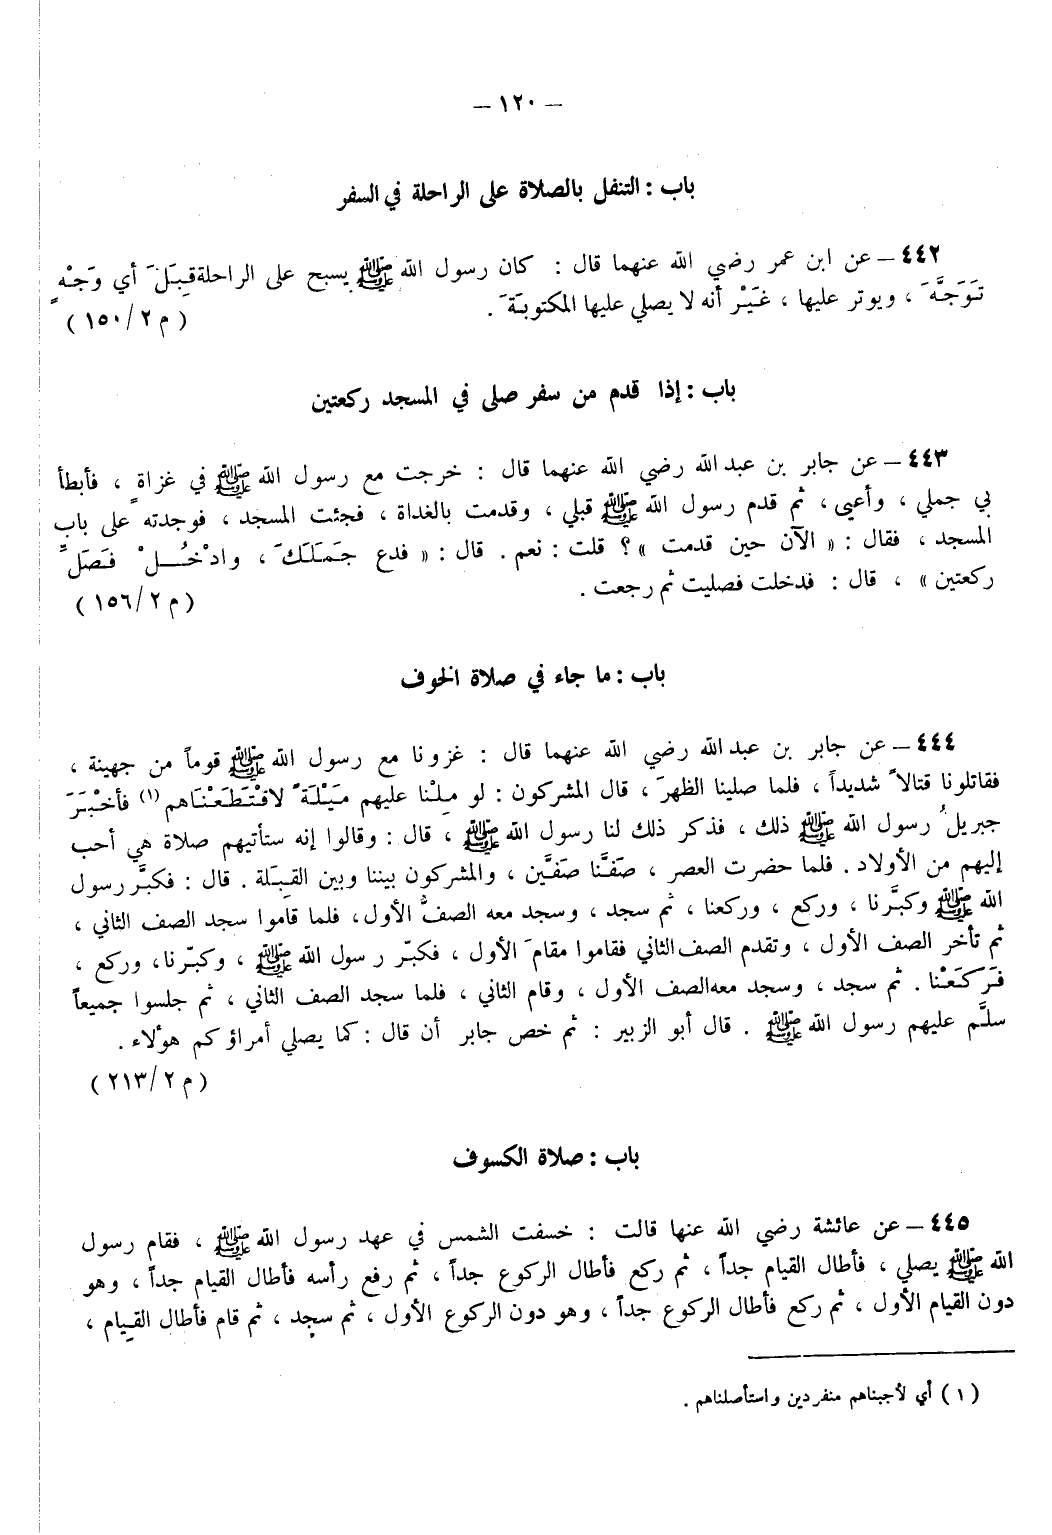 – ١٢٠ –
باب : التنفل بالصلاة على الراحلة في السفر
٤٤٢ – عن ابن عمر رضي الله عنهما قال : كان رسول الله ﷺ يسبح على الراحلة قِبَلَ أي وَجْهٍ
تَوَجَّهَ ، ويوتر عليها ، غَيْرَ أنه لا يصلي عليها المكتوبَةَ .
( م ٢/١٥٠ )
باب : إذا قدم من سفر صلى في المسجد ركعتين
٤٤٣ – عن جابر بن عبد الله رضي الله عنهما قال : خرجت مع رسول الله ﷺ في غزاةٍ ، فأبطأ
بي جملي ، وأعيى ، ثم قدم رسول الله ﷺ قبلي ، وقدمت بالغداة ، فجئت المسجد ، فوجدته على باب
المسجد ، فقال : « الآن حين قدمت » ؟ قلت : نعم . قال : « فدع جَمَلَكَ ، وادْخُلْ فَصَلِّ
ركعتين » ، قال : فدخلت فصليت ثم رجعت .
( م ٢/١٥٦ )
باب : ما جاء في صلاة الخوف
٤٤٤ – عن جابر بن عبد الله رضي الله عنهما قال : غزونا مع رسول الله ﷺ قوماً من جهينة ،
فقاتلونا قتالاً شديداً ، فلما صلينا الظهرَ ، قال المشركون : لو مِلْنا عليهم مَيْلَةً لاقْتَطَعْنَاهم (١) فأخْبَرَ
جبريلُ رسول الله ﷺ ذلك ، فذكر ذلك لنا رسول الله ﷺ ، قال : وقالوا إنه ستأتيهم صلاة هي أحب
إليهم من الأولاد . فلما حضرت العصر ، صَفَّنَا صَفَّين ، والمشركون بيننا وبين القِبَلة . قال : فكبَّر رسول
الله ﷺ وكبَّرنا ، وركع ، وركعنا ، ثم سجد ، وسجد معه الصفُّ الأول، فلما قاموا سجد الصف الثاني ،
ثم تأخر الصف الأول ، وتقدم الصف الثاني فقاموا مقامَ الأول ، فكبّر رسول الله ﷺ ، وكبّرنا، وركع ،
فَرَكَعْنا . ثم سجد ، وسجد معه الصف الأول ، وقام الثاني ، فلما سجد الصف الثاني ، ثم جلسوا جميعاً
سلَّم عليهم رسول الله ﷺ . قال أبو الزبير : ثم خص جابر أن قال : كما يصلي أمراؤكم هؤلاء .
( م ٢/٢١٣ )
باب : صلاة الكسوف
٤٤٥ – عن عائشة رضي الله عنها قالت : خسفت الشمس في عهد رسول الله ﷺ ، فقام رسول
الله ﷺ يصلي ، فأطال القيام جداً ، ثم ركع فأطال الركوع جداً ، ثم رفع رأسه فأطال القيام جداً ، وهو
دون القيام الأول ، ثم ركع فأطال الركوع جداً ، وهو دون الركوع الأول ، ثم سجد ، ثم قام فأطال القيام ،
( ١ ) أي لأجبناهم منفردين واستأصلناهم .